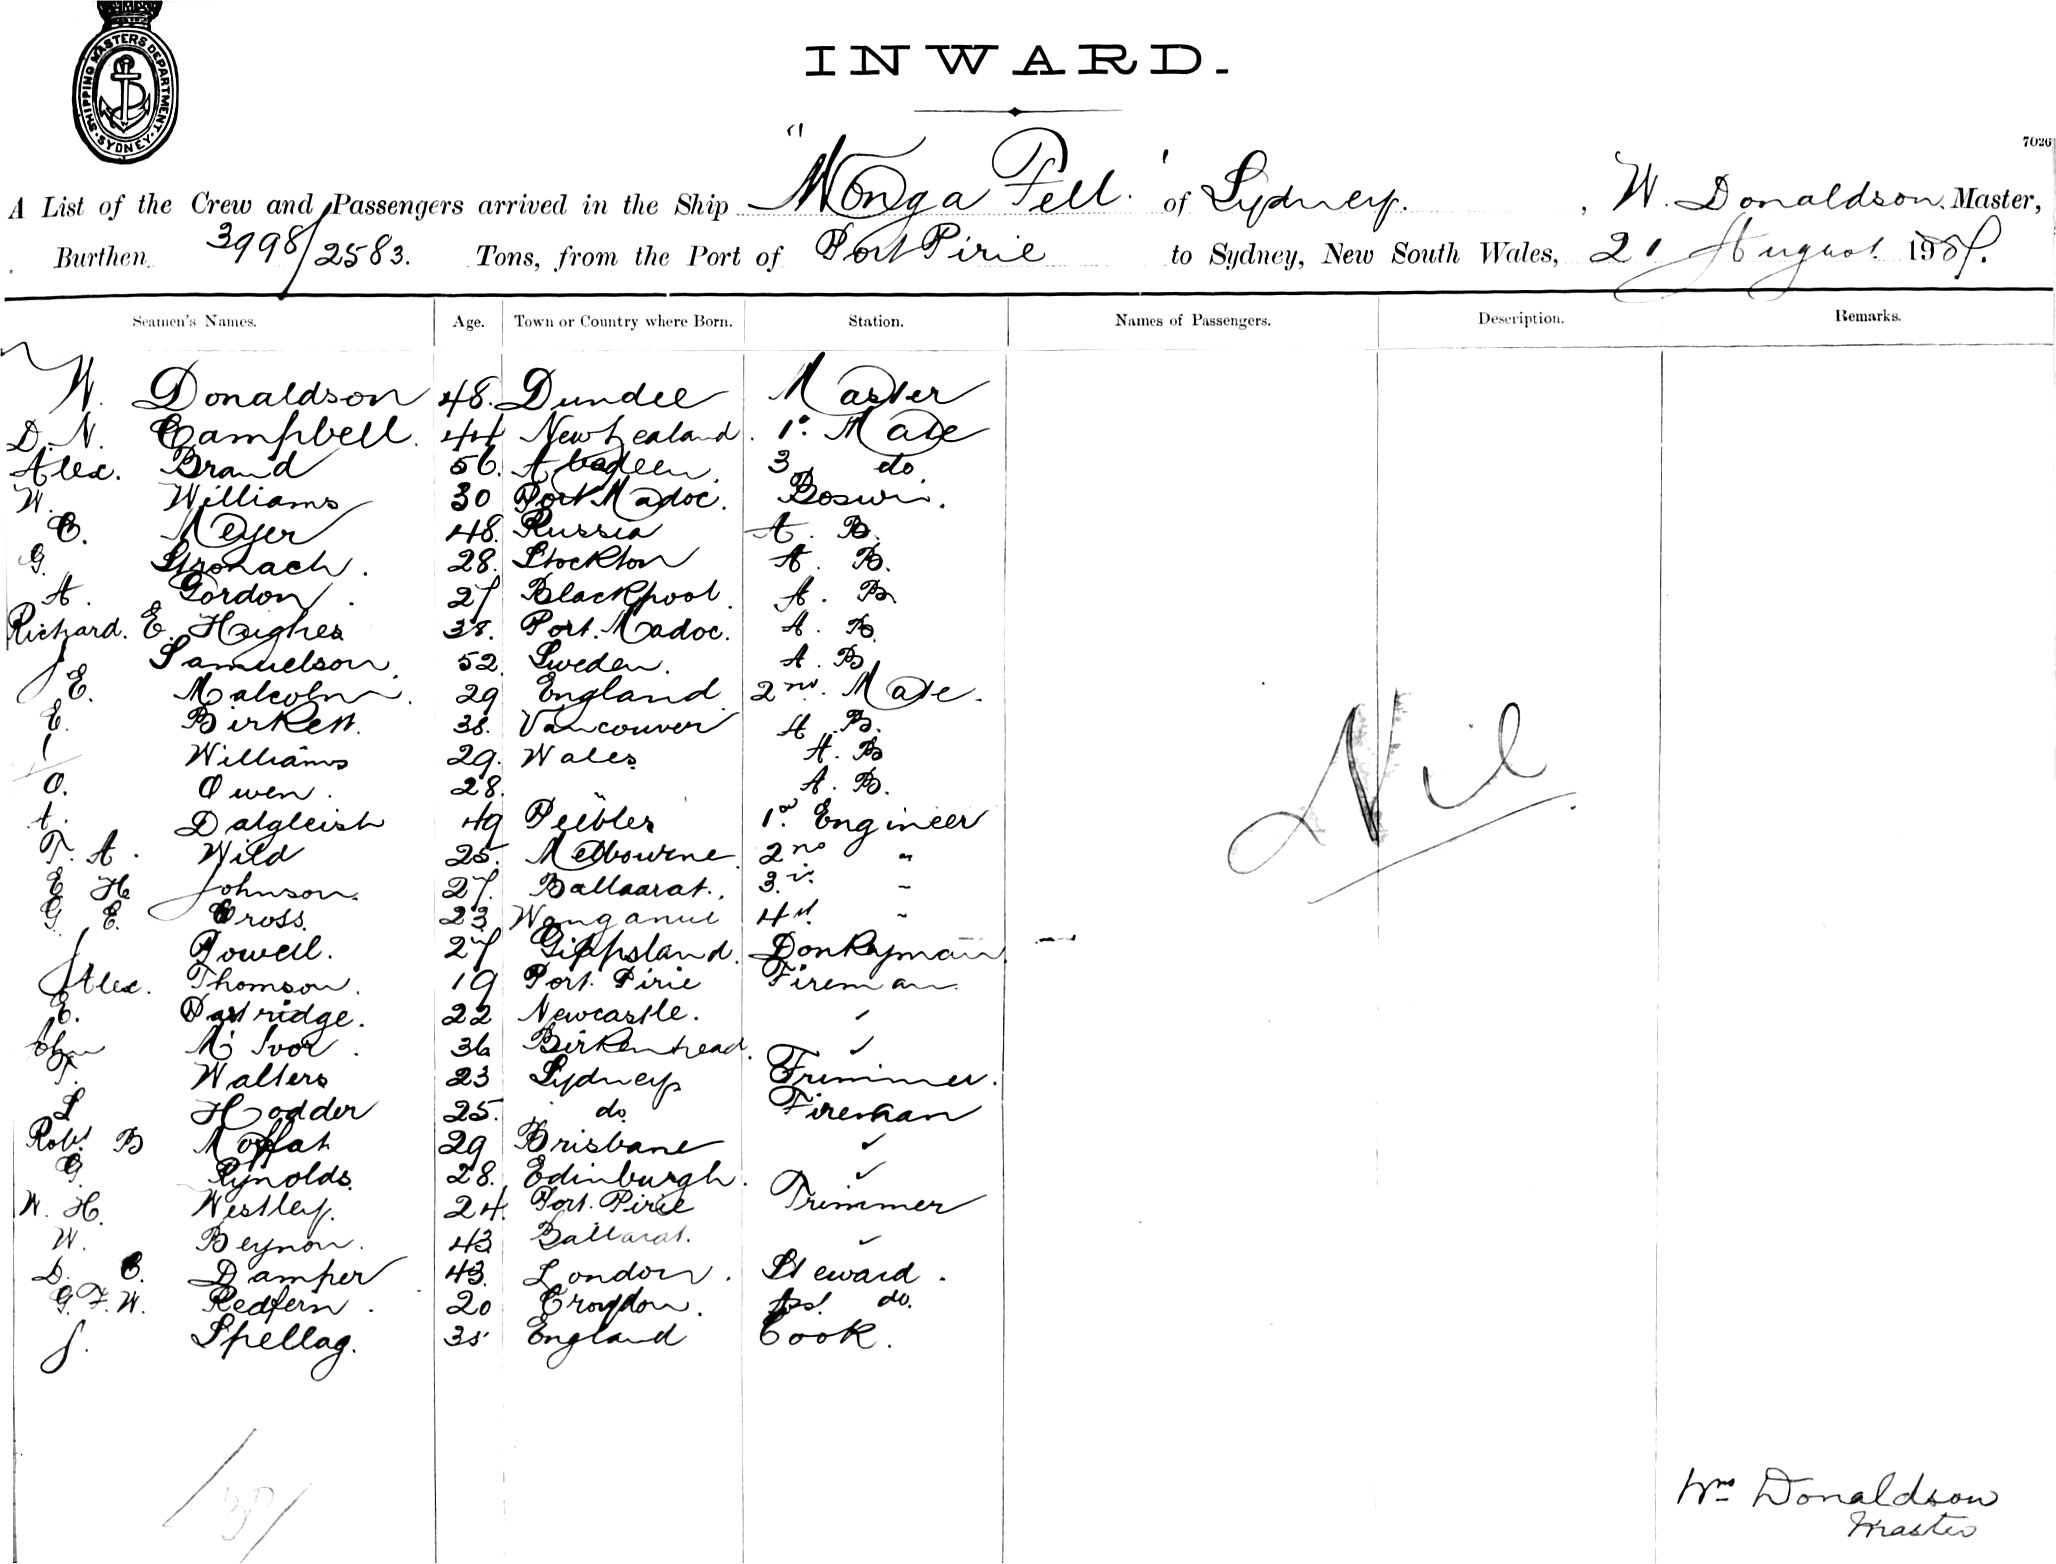 SHIPPING MASTERS DEPARTMENT. SYDNEY
INWARD.
7026
A List of the Crew and Passengers arrived in the Ship "Wonga Fell" of Sydney. , W. Donaldson, Master,
Burthen 3998/2583. Tons, from the Port of Port Pirie to Sydney, New South Wales, 21 August
Seamen's Names. Age. Town or Country where Born. Station. Names of Passengers. Description. Remarks.
W. Donaldson 48. Dundee Master
D. N. Campbell. 44 New Zealand. 1st Mate
Alex. Brand 56. Aberdeen. 3 do
W. Williams 30 Port Madoc. Boswn.
C. Meyer 48. Russia A. B.
G. Stronach. 28. Stockton A. B.
A. Gordon. 27 Blackpool. A. B
Richard. E. Hughes 38. Port. Madoc. A. B.
J Samuelson. 52 Sweden. A. B
E. Malcolm. 29 England 2nd. Mate.
E. Birkett. 38. Vancouver A. B.
Williams 29. Wales A. B
O. Owen. 28. " A. B.
Dalgleish 49 Peebles 1st Engineer
T. A. Wild 25. Melbourne. 2nd "
E H Johnson. 27. Ballaarat. 3. "
G. E. Cross. 23 Wanganui 4th. "
J Powell. 27 Gippsland. Donkeyman
Alex. Thomson. 19 Port. Pirie Fireman.
E. Partridge. 22 Newcastle. "
John Mc Ivor. 36 Birkenhead. "
T. Walters 23 Sydney Trimmer.
L Hodder 25. do. Fireman
Robt. B Moffat 29 Brisbane "
G. Rynolds. 28. Edinburgh. "
W. H. Westley. 24. Port. Pirie Trimmer
W. Beynon. 43 Ballarat. "
D. C. Damper 43. London. Steward.
G. F. W. Redfern. 20 Croydon. Asst. do.
J. Spellag. 35 England Cook.
Nil
Wm Donaldson
Master